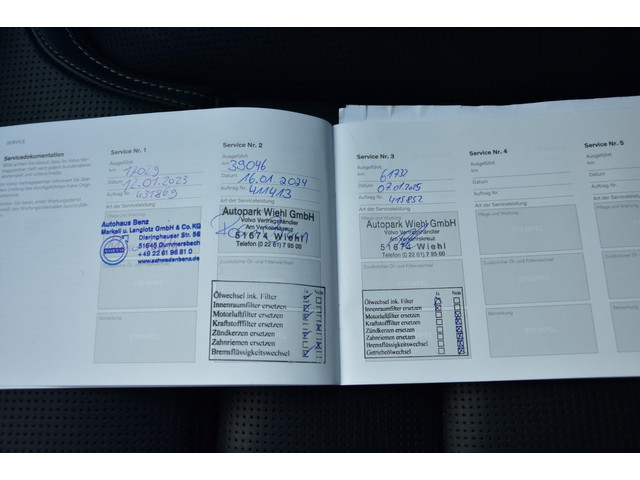 SERVICE
Servicedokumentation
Service Nr. 1
Ausgeführt
km 17029
Datum 12.01.2023
Auftrag Nr. 431869
Art der Serviceleistung
Autohaus Benz
Markall u. Langlotz GmbH & Co. KG
Dieringhauser Str. 56
51645 Gummersbach
+49 22 61 96 81 0
www.schwedenbenz.de
VOLVO
Bemerkung
Service Nr. 2
Ausgeführt
km 39046
Datum 16.01.2024
Auftrag Nr. 411413
Art der Serviceleistung
Autopark Wiehl GmbH
Volvo Vertragshändler
Am Verkehrskreuz
51674 Wiehl
Telefon (0 22 61) 7 95 00
Ja Nein
Ölwechsel ink. Filter
Innenraumfilter ersetzen
Motorluftfilter ersetzen
Kraftstofffilter ersetzen
Zündkerzen ersetzen
Zahnriemen ersetzen
Bremsflüssigkeitswechsel
Service Nr. 3
Ausgeführt
km 61732
Datum 07.01.2025
Auftrag Nr. 415852
Art der Serviceleistung
Pflege und Wartung
Autopark Wiehl GmbH
Volvo Vertragshändler
Am Verkehrskreuz
51674 Wiehl
Telefon (0 22 61) 7 95 00
Zusätzlicher Öl- und Filterwechsel
Ja Nein
Ölwechsel ink. Filter
Innenraumfilter ersetzen
Motorluftfilter ersetzen
Kraftstofffilter ersetzen
Zündkerzen ersetzen
Zahnriemen ersetzen
Bremsflüssigkeitswechsel
Getriebeölwechsel
Service Nr. 4
Ausgeführt
km
Datum
Auftrag Nr.
Art der Serviceleistung
Pflege und Wartung
Zusätzlicher Öl- und Filterwechsel
Bemerkung
Service Nr. 5
Ausgeführt
km
Datum
Auftrag Nr.
Art der Serviceleistung